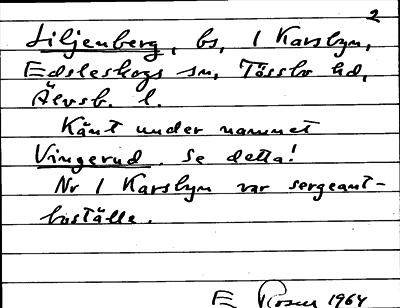 2
Liljenberg, bs, 1 Karsbyn,
Edsleskogs sn, Tössbo hd,
Älvsb. l.
Känt under namnet
Vingerud. Se detta!
Nr 1 Karsbyn var sergeant-
boställe.
E Rosén 1964